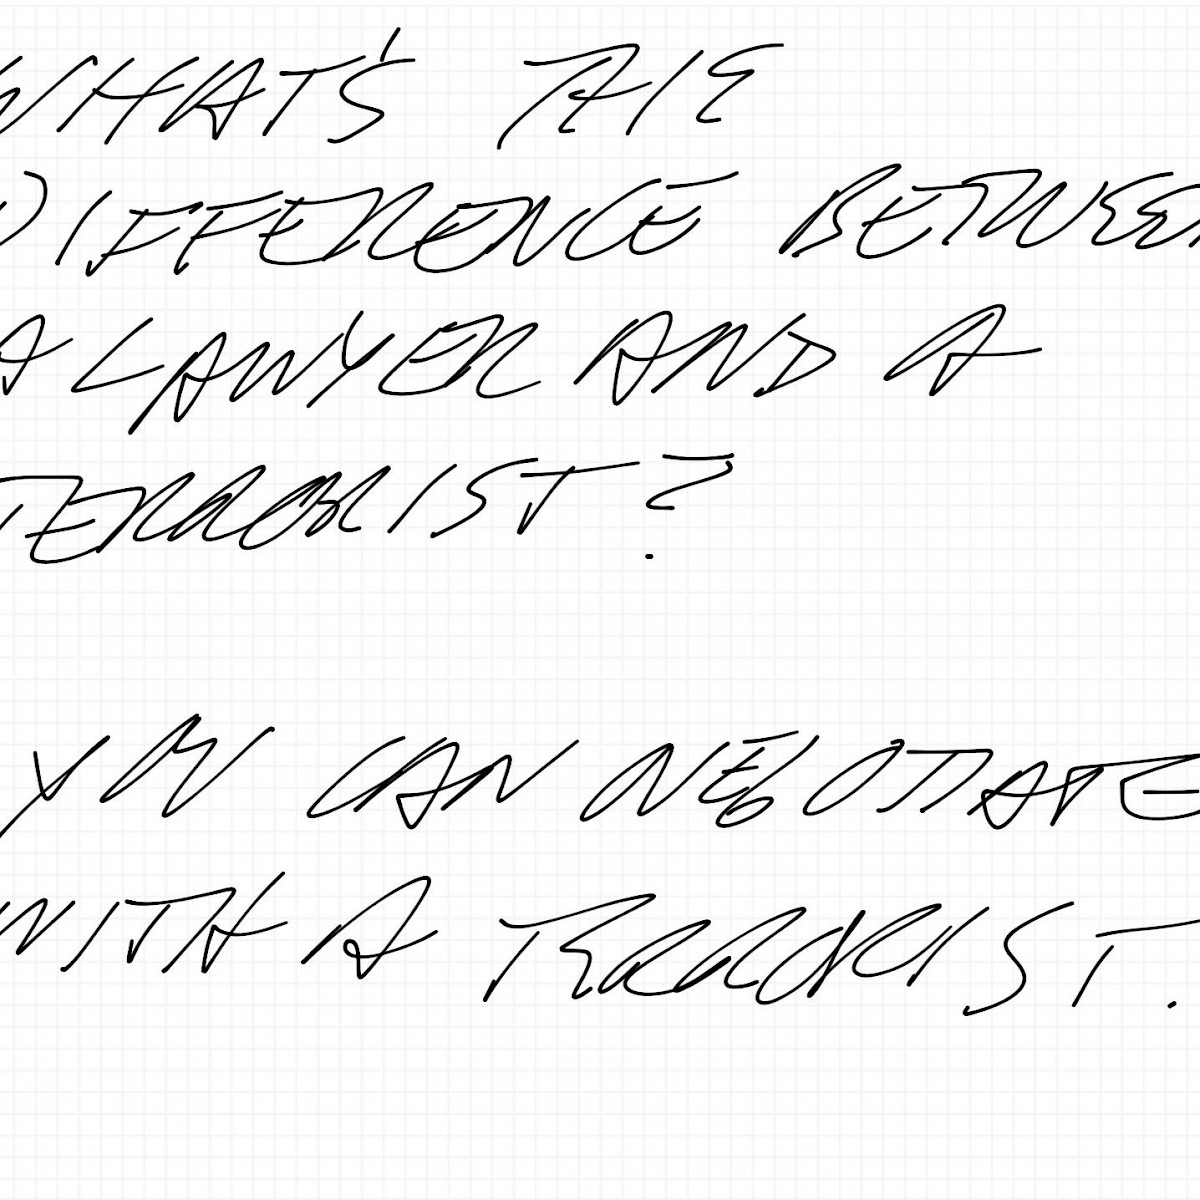 WHAT'S THE
DIFFERENCE BETWEEN
A LAWYER AND A
TERRORIST?
YOU CAN NEGOTIATE
WITH A TERRORIST.